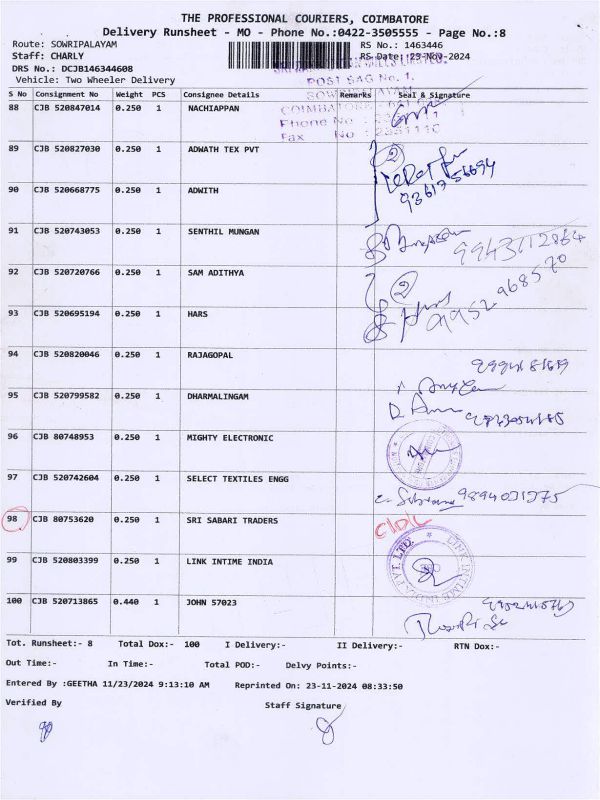 THE PROFESSIONAL COURIERS, COIMBATORE
Delivery Runsheet - MO - Phone No.:0422-3505555 - Page No.:8
Route: SOWRIPALAYAM RS No.: 1463446
Staff: CHARLY RS Date: 23-Nov-2024
DRS No.: DCJB146344608
Vehicle: Two Wheeler Delivery
POST BAG No. 1,
S No Consignment No Weight PCS Consignee Details Remarks Seal & Signature
88 CJB 520847014 0.250 1 NACHIAPPAN
Phone No
Fax No
89 CJB 520827030 0.250 1 ADWATH TEX PVT 2
90 CJB 520668775 0.250 1 ADWITH
91 CJB 520743053 0.250 1 SENTHIL MUNGAN
92 CJB 520720766 0.250 1 SAM ADITHYA 2
93 CJB 520695194 0.250 1 HARS
94 CJB 520820046 0.250 1 RAJAGOPAL
95 CJB 520799582 0.250 1 DHARMALINGAM
96 CJB 80748953 0.250 1 MIGHTY ELECTRONIC
97 CJB 520742604 0.250 1 SELECT TEXTILES ENGG
98 CJB 80753620 0.250 1 SRI SABARI TRADERS
99 CJB 520803399 0.250 1 LINK INTIME INDIA
LINK INTIME INDIA PVT. LTD.
100 CJB 520713865 0.440 1 JOHN 57023
Tot. Runsheet:- 8 Total Dox:- 100 I Delivery:- II Delivery:- RTN Dox:-
Out Time:- In Time:- Total POD:- Delvy Points:-
Entered By :GEETHA 11/23/2024 9:13:10 AM Reprinted On: 23-11-2024 08:33:50
Verified By Staff Signature